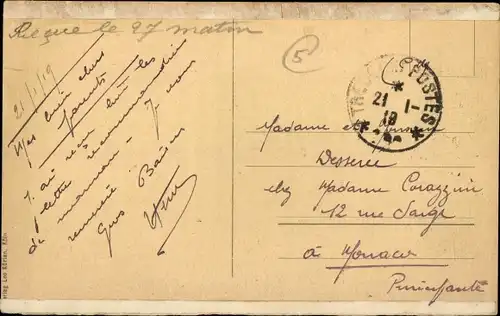 Reçue le 27 matin
5
21/1/19
Mes bien chers
Parents
J'ai reçu hier les
lettre recommandée
de maman. Je vous
remercie
Gros Baisers
TRESOR ET POSTES
21 1-
19
Madame et Monsieur
Desserre
chez Madame Corazzini
12 rue
à Monaco
Principauté